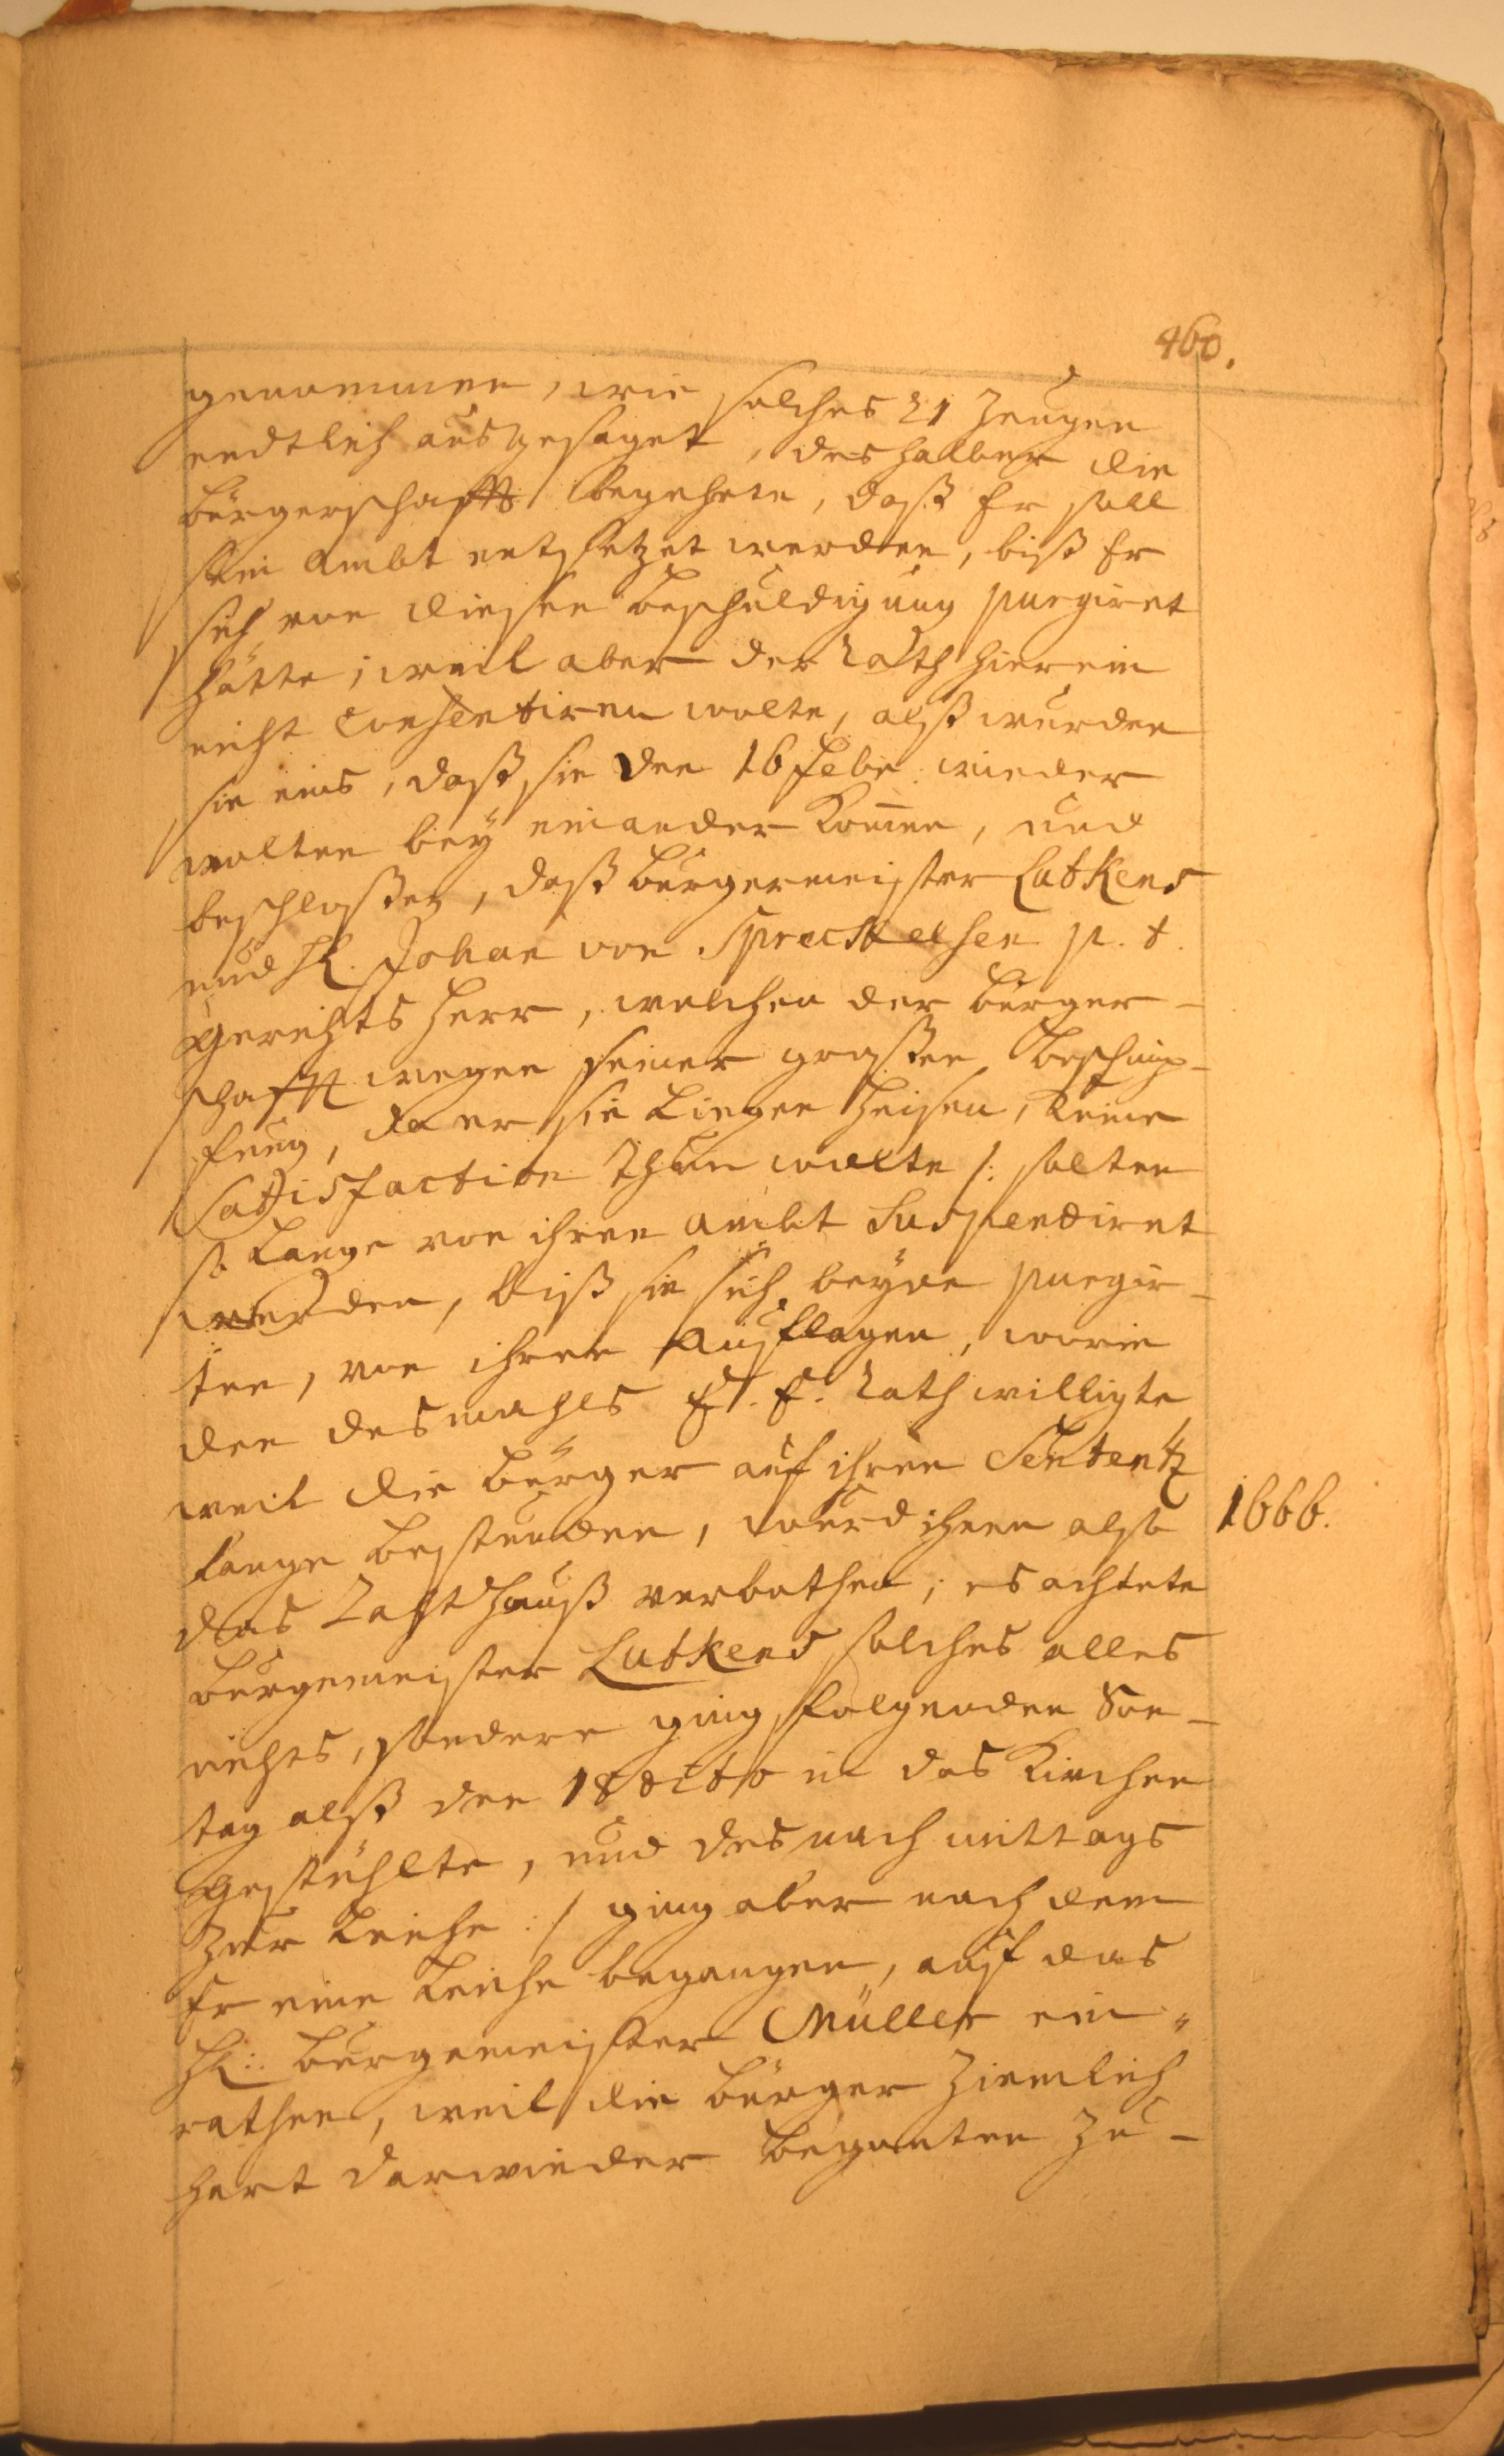 460.
genommen, wie solches 21 Zeugen
eydtlich ausgesaget, deshalben die
Bürgerschafft begehren, daß Er soll
sein Ambt entsetzet werden, biß Er
sich von diesen beschuldigung purgiret
hätte; weil aber der Rath hierein
nicht consentiren wolte, alß wurden
sie eins, daß sie den 16 Febr: wieder
wolten beÿ einander kom̅en, und
beschloßen, daß Bürgermeister Lutkens
und H. Johan von Spreckelsen p. t.
Gerichts Herr, welchen der Bürger-
schafft wegen seiner großen beschimp-
fung, da er sie Liegen heisen, keine
Sattisfaction thun wolte /: solten
so lange von ihren Ambt Suspendiret
werden, biß sie sich beÿde purgir-
ten, von ihren Aufflagen, worin
den desmahls E. E. Rath willigte
weil die Bürger auf ihren Sententz
lange bestunden, wurd ihnen also
1666.
das Rahthauß verbothen; es achtete
Burgemeister Lutkens solches alles
nichts, sondern ging folgenden Son-
tag alß den 18 dito in das Kirchen
Gestühlte, und des nach mittags
zur Leiche :/ ging aber nach dem
Er eine Leiche begangen, auf das
H: Burgemeister Müller ein„
rathen, weil die Bürger ziemlich
hart darwieder begunten zu-